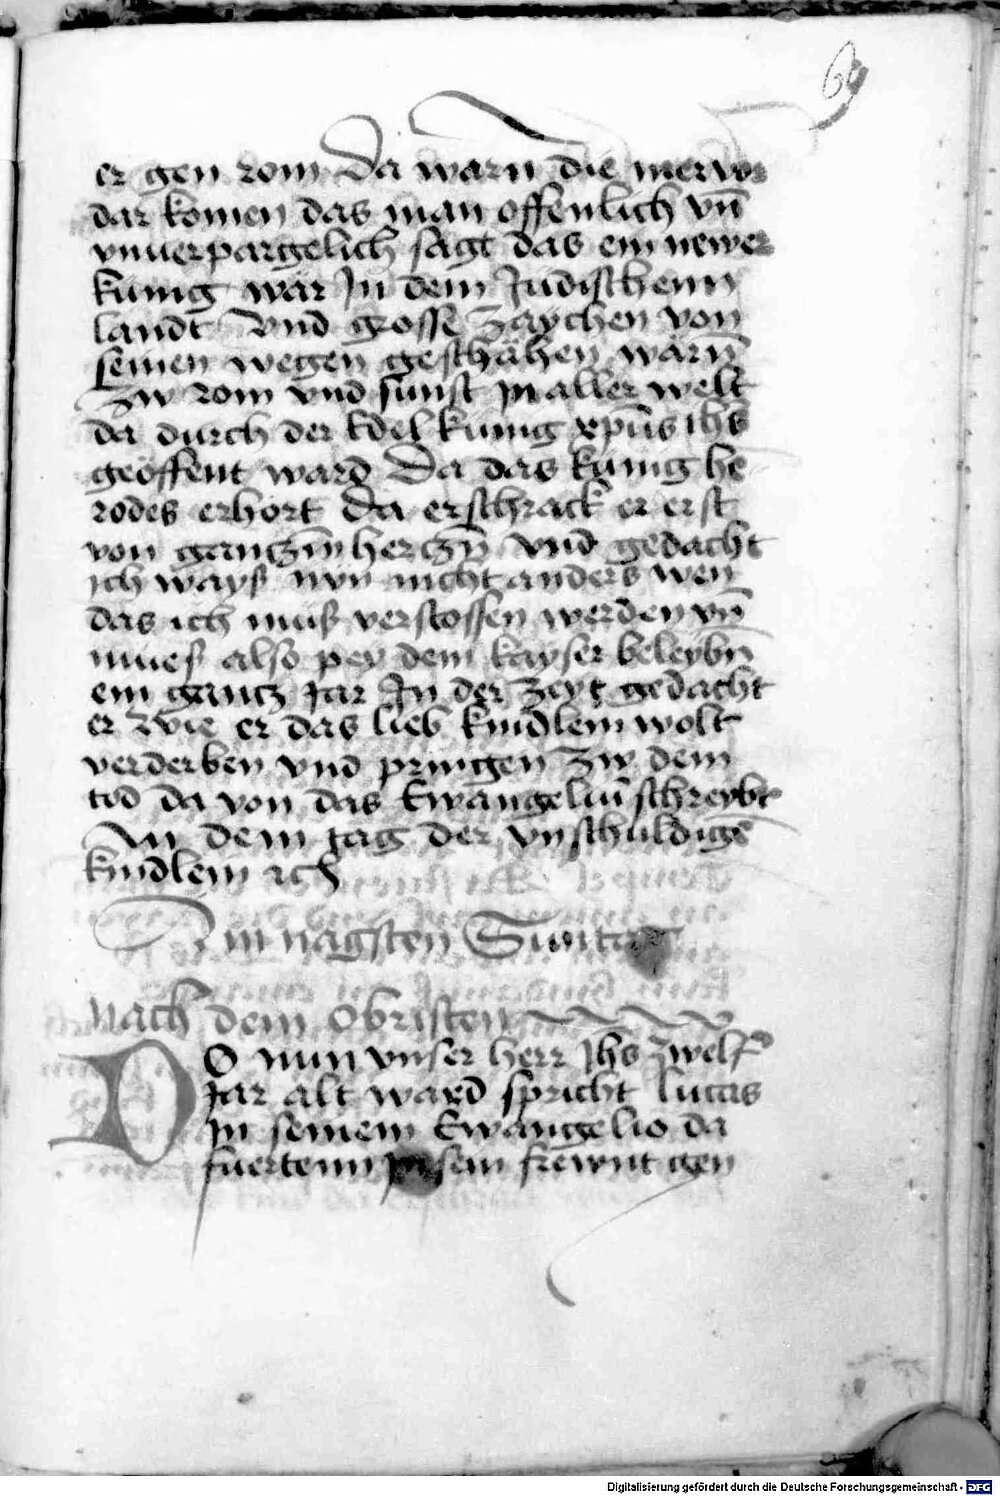 69
er gen rom Da warn die mer vor
dar komen das man offenlich vn̄
vnuerpargelich sagt das ein newer
künig wär Jn dem Judischenn
landt Vnd grosse zaychen von
seinen wegen geschähen wärn̄
zw rom vnd sunst jn aller welt
da durch der Edel künig xp̄us ihs
geöffent ward Da das künig he
rodes erhort Da erschrack er erst
von gantzm̄ hertzn̄ vnd gedacht
ich wayß nvn nicht anders wen
das ich muß verstossen werden vn̄
mues also pey dem kayser beleybn̄
ein gantz jar Jn der zeyt gedacht
er wie er das lieb kindlein wolt
verderben vnd pringen zw dem
tod da von das Ewangeliu̅ schreybt
An dem tag der vnschuldigē
kindlein rch
Am nagsten Suntag
nach dem obristen
DO nun vnser herr Jhs zwelf
Jar alt ward spricht lucas
Jn seinem Ewangelio da
fuertenn jn sein frewnt gen
Digitalisierung gefördert durch die Deutsche Forschungsgemeinschaft - DFG